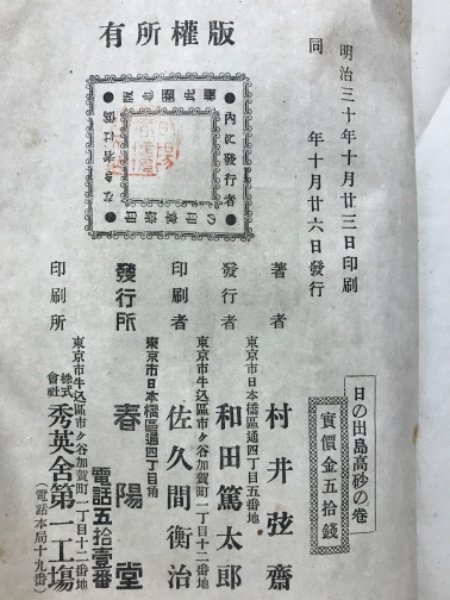 明治三十年十月廿三日印刷
同　年十月廿六日發行
版權所有
日の出島高砂の巻
實價金五拾錢
著者
村井弦齋
東京市日本橋區通四丁目五番地
發行者
和田篤太郎
東京市牛込區市ヶ谷加賀町一丁目十二番地
印刷者
佐久間衡治
東京市日本橋區通四丁目角
發行所
春陽堂
電話五拾壹番
東京市牛込區市ヶ谷加賀町一丁目十二番地
印刷所
株式會社
秀英舍第一工場
(電話本局十九番)